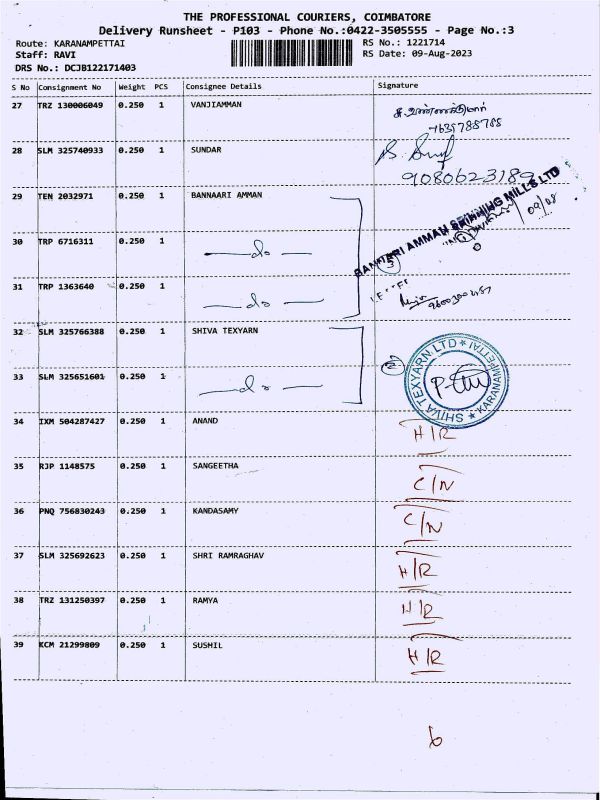 THE PROFESSIONAL COURIERS, COIMBATORE
Delivery Runsheet - P103 - Phone No.:0422-3505555 - Page No.:3
Route: KARANAMPETTAI RS No.: 1221714
Staff: RAVI RS Date: 09-Aug-2023
DRS No.: DCJB122171403
S No Consignment No Weight PCS Consignee Details Signature
27 TRZ 130006049 0.250 1 VANJIAMMAN
28 SLM 325740933 0.250 1 SUNDAR
9080623189
29 TEN 2032971 0.250 1 BANNAARI AMMAN
BANNARI AMMAN SPINNING MILLS LTD
09/08
30 TRP 6716311 0.250 1 do
31 TRP 1363640 0.250 1 do
32 SLM 325766388 0.250 1 SHIVA TEXYARN
33 SLM 325651601 0.250 1 do
SHIVA TEXYARN LTD ★ KARANAMPETTAI ★
34 IXM 504287427 0.250 1 ANAND H/R
35 RJP 1148575 0.250 1 SANGEETHA C/N
36 PNQ 756830243 0.250 1 KANDASAMY C/N
37 SLM 325692623 0.250 1 SHRI RAMRAGHAV H/R
38 TRZ 131250397 0.250 1 RAMYA H/R
39 KCM 21299809 0.250 1 SUSHIL H/R
6